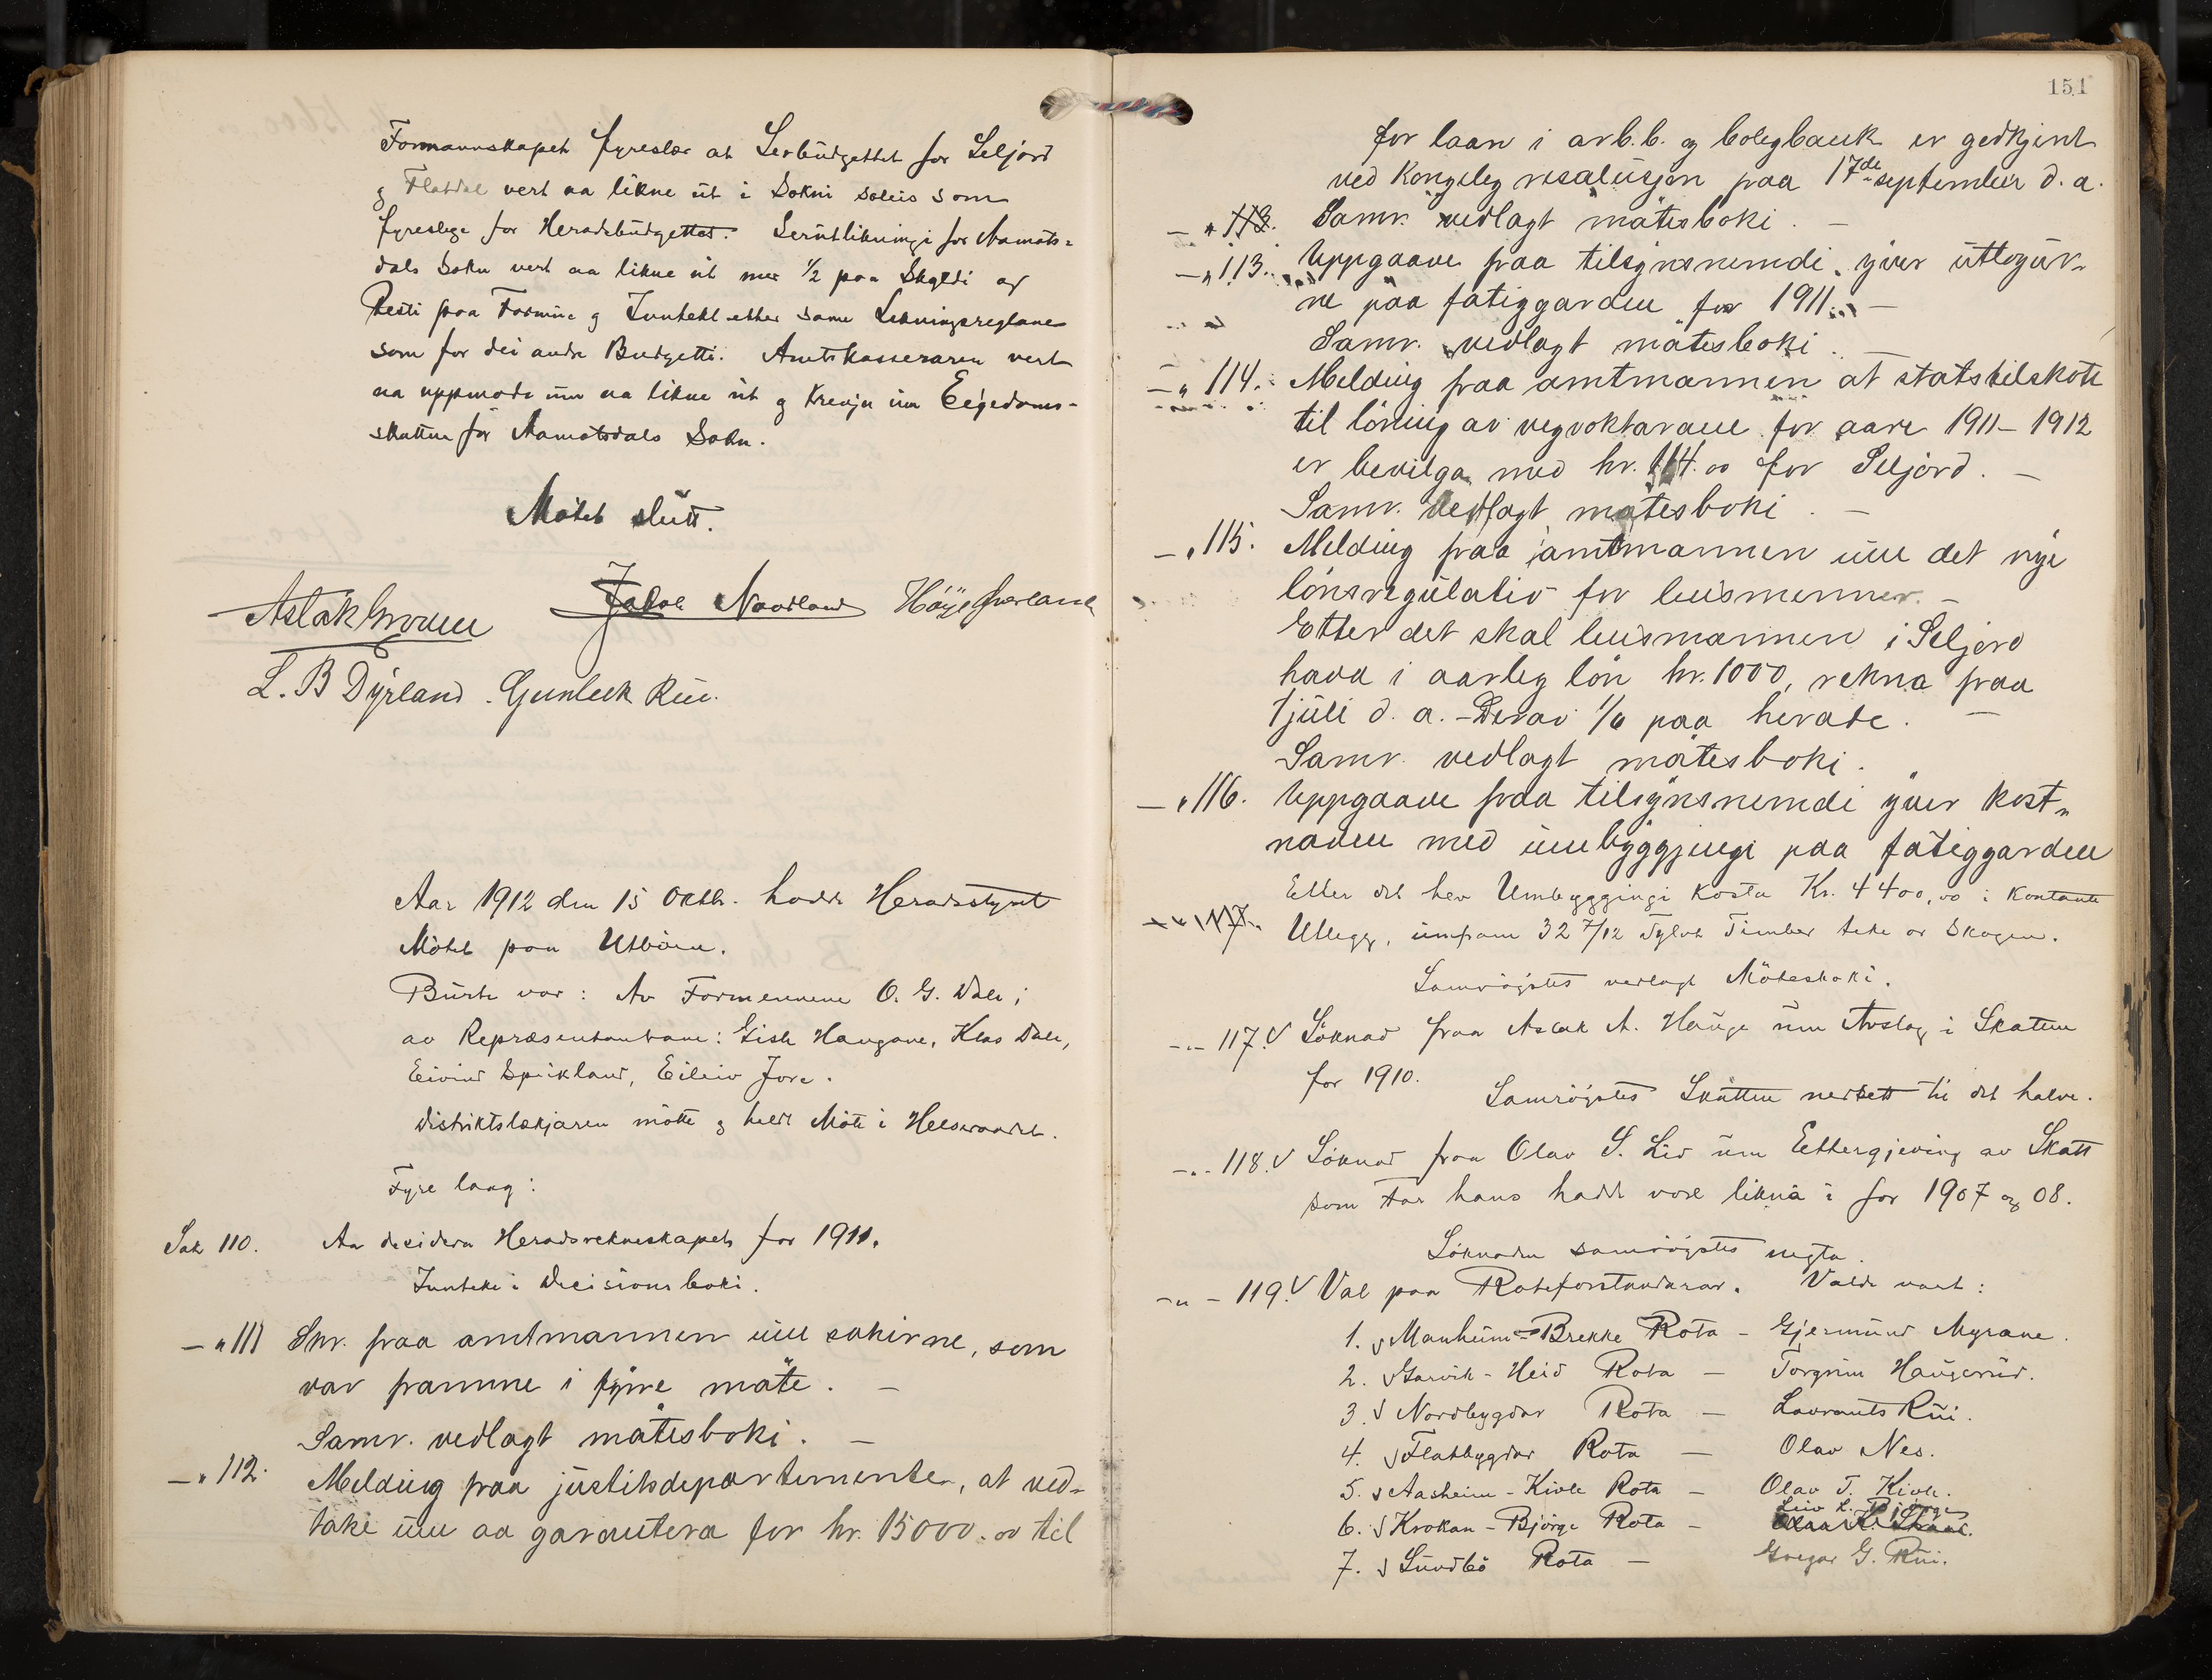 Formannskapet fyreslær at Serbudgettet for Seljord
og Flatdal vert aa likne ut i Sokni soleis som
fyreslege for Heradsbudgettet. Serutlikningi for Aamots=
dals Sokn vert aa likne ut med 1/2 paa Skyldi og
Resti paa Formue og Inntekt etter same Likningsreglane
som for dei andre Budgetti. Amtskasseraren vert
aa uppmode um aa likne ut og krevja inn Eigedoms-
skatten for Aamotsdals Sokn.
Mötet slutt.
Aslak Groven Jakob Nordland Höye Juvland
L. B Dyrland. Gunleik Rui.
Aar 1912 den 15 Oktbr. hadde Heradsstyret
Mötet paa Utböen.
Burte var: Av Formennene O. G. Dale;
av Repræsentantane: Gisle Haugane, Klas Dale,
Eivind Speikland, Eileiv Jore.
Distriktslækjaren mötte og heldt Möte i Helseraadet.
Fyre laag:
Sak 110. Aa decidera Heradsrekneskapet for 1911.
Innteke i Decisionsboki.
— " 111 Skr. fraa amtmannen um sakirne, som
var framme i fyrre möte. —
Samr. vedlagt mötesboki. —
— " 112. Melding fraa justitsdepartemente, at ved-
taki um aa garantera for kr. 15000.00 til
151
for laan i arb.b. og bolegbank er godkjent
ved Kongeleg resolusjon paa 17de september d. a.
— " 113. Samr. vedlagt mötesboki. —
— " 113. Uppgaave fraa tilsynsnemdi yver utlogur-
ne paa fatiggarden for 1911. —
Samr. vedlagt mötesboki. —
— " 114. Melding fraa amtmannen at statstilskote
til löning av vegvoktarane for aare 1911–1912
er bevilga med kr. 114.00 for Seljord. —
Samr. vedlagt mötesboki. —
— " 115. Melding fraa amtmannen um det nye
lönsregulativ for leismenner. —
Etter det skal leismannen i Seljord
hava i aarleg lön kr. 1000, rekna fraa
1 juli d. a. – Derav 1/6 paa herade. —
Samr. vedlagt mötesboki.
— " 116. Uppgaave fraa tilsynsnemdi yver kost-
naden med umbyggjingi paa fatiggarden
Etter det hev Umbyggjingi kosta Kr. 4400,00 i kontante
— " 117. Utlegg, umfram 32 7/12 Tylvt Timber teke or Skogen.
Samröystes vedlagt Mötesboki.
— " — 117. V Söknad fraa Aslak A. Hauge um Avslag i Skatten
for 1910.
Samröystes Skatten nedsett til det halve.
— " — 118. V Söknad fraa Olav S. Lid um Ettergjeving av Skatt
som Far hans hadde vore likna i for 1907 og 08.
Söknaden samröystes negta.
— " — 119. V Val paa Roteforstandarar. Valde vart:
1. V Manheim=Brekke Rota – Gjermund Myrane.
2. V Garvik - Heid Rota — Torgrim Haugerud.
3. V Nordbygdar Rota — Lavrants Rui.
4. V Flatbygdar Rota — Olav Nes.
5. V Aasheim - Kivle Rota – Olav T. Kivle.
6. V Krokan - Björge Rota – Leiv L. Björge
7. V Sundbö Rota — Gregar G. Rui.